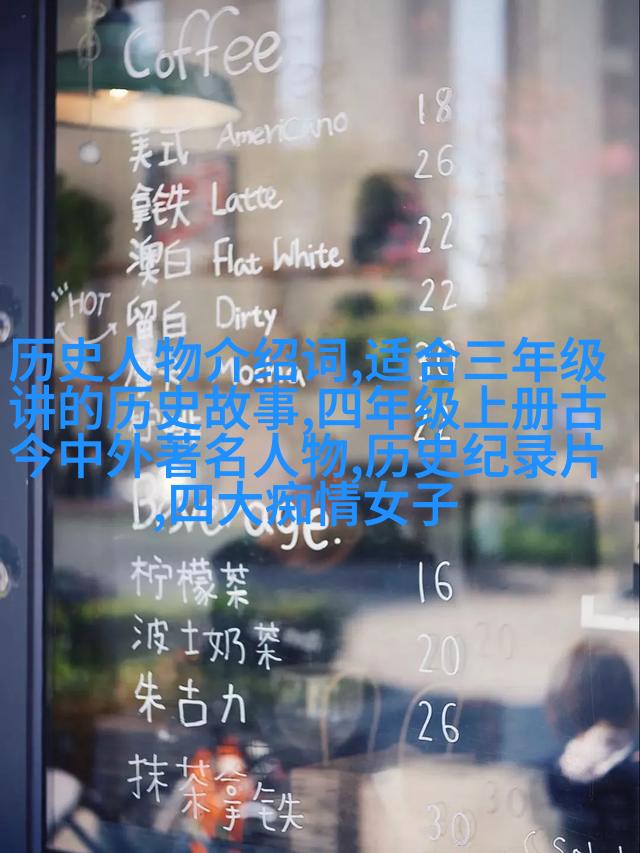 Coffee
美式 Americano 18
拿铁 Latte 26
澳白 Flat White 22
留白 Dirty 22
HOT
Mocha
历史人物介绍词,适合三年级
讲的历史故事,四年级上册古
今中外著名人物,历史纪录片
,四大痴情女子
Beverage.
柠檬茶 16
波士奶茶 20
朱古力 26
抹茶拿铁 30